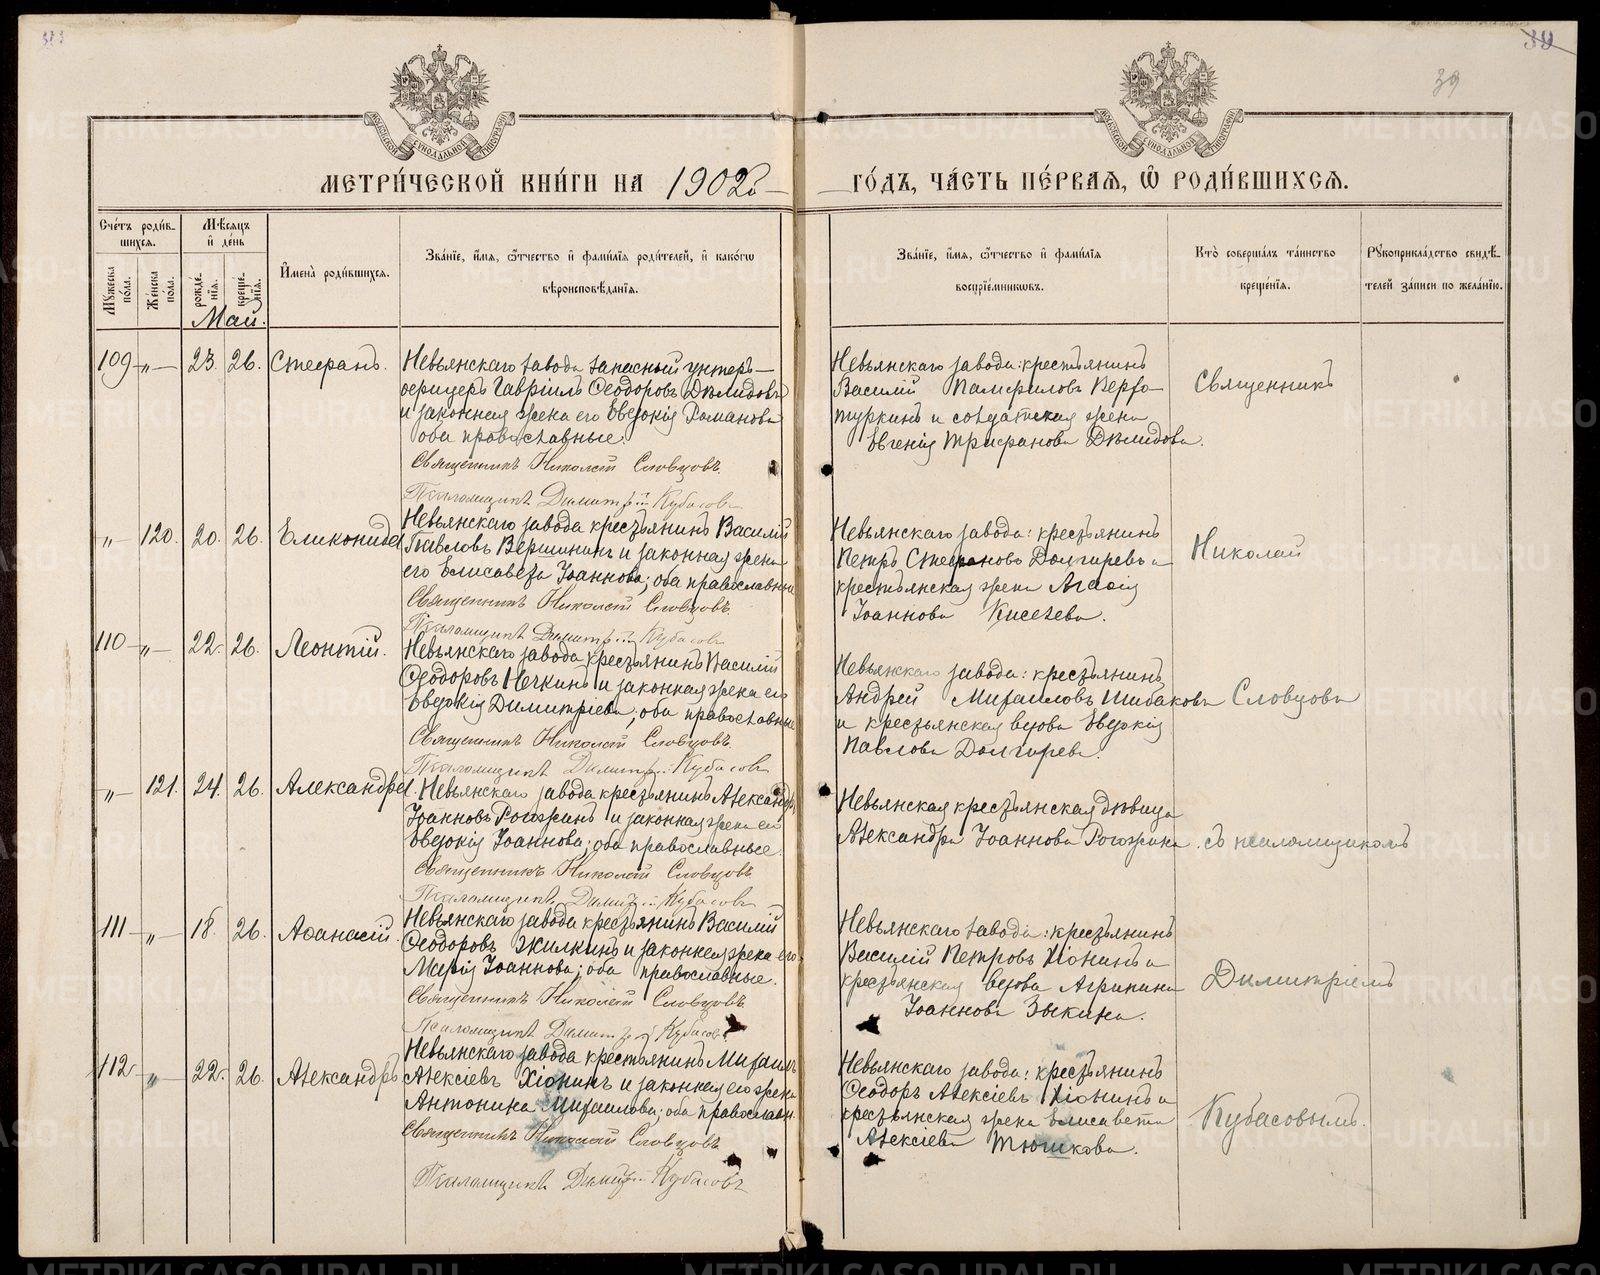 39
МЕТРИ́ЧЕСКОЙ КНИ́ГИ НА 1902й
ГО́ДЪ, ЧА́СТЬ ПЕ́РВАЯ, Ѽ РОДИ́ВШИХСЯ.
Сче́тъ роди́в-
шихся.
Му́жеска по́ла.
Же́нска по́ла.
Мѣ́сяцъ и́ де́нь
рожде́нїя.
креще́нїя.
И҆мена̀ роди́вшихся.
Зва́нїе, и҆́мя, ѻ҆́тчество и҆ фами́лїя роди́телей, и҆ како́гѡ
вѣроисповѣ́данїя.
Зва́нїе, и҆́мя, ѻ҆́тчество и҆ фами́лїя
воспрїе́мникѡвъ.
Кто̀ соверша́лъ та́инство
креще́нїя.
Рꙋкоприкла́дство свидѣ́-
телей за́писи по жела́нїю.
Май.
109 „ 23. 26. Стефанъ.
Невьянскаго завода запасный унтеръ-
офицеръ Гавріилъ Ѳеодоровъ Дѣмидовъ
и законная жена его Евдокія Романова
оба православные.
Священникъ Николай Словцовъ.
Псаломщикъ Димитрій Кубасовъ
Невьянскаго завода: крестьянинъ
Василій Памфиловъ Верхо-
туркинъ и солдатская жена
Евгенія Трифанова Дѣмидова.
Священникъ
„ 120. 20. 26. Еликонида
Невьянскаго завода крестьянинъ Василій
Павловъ Вершининъ и законная жена
его Елисавета Іоаннова; оба православные
Священникъ Николай Словцовъ.
Псаломщикъ Димитрій Кубасовъ
Невьянскаго завода: крестьянинъ
Петръ Стефановъ Долгиревъ и
крестьянская жена Агафія
Іоаннова Киселева.
Николай
110 „ 22. 26. Леонтій.
Невьянскаго завода крестьянинъ Василій
Ѳеодоровъ Нечкинъ и законная жена его
Евдокія Димитріева; оба православные
Священникъ Николай Словцовъ.
Псаломщикъ Димитрій Кубасовъ
Невьянскаго завода: крестьянинъ
Андрей Михаиловъ Шибаковъ
и крестьянская вдова Евдокія
Павлова Долгирева.
Словцовъ
„ 121. 24. 26. Александра.
Невьянскаго завода крестьянинъ Александръ
Іоанновъ Рогожинъ и законная жена его
Евдокія Іоаннова; оба православные.
Священникъ Николай Словцовъ.
Псаломщикъ Димитрій Кубасовъ
Невьянская крестьянская дѣвица
Александра Іоаннова Рогожина.
съ псаломщикомъ
111 „ 18. 26. Аѳанасій.
Невьянскаго завода крестьянинъ Василій
Ѳеодоровъ Жилкинъ и законная жена его
Марія Іоаннова; оба православные.
Священникъ Николай Словцовъ
Псаломщикъ Димитрій Кубасовъ
Невьянскаго завода: крестьянинъ
Василій Петровъ Хіонинъ и
крестьянская вдова Агрипина
Іоаннова Зыкина.
Димитріемъ
112 „ 22. 26. Александръ
Невьянскаго завода крестьянинъ Михаилъ
Алексіевъ Хіонинъ и законная его жена
Антонина Михаилова; оба православн.
Священникъ Николай Словцовъ
Псаломщикъ Димитрій Кубасовъ
Невьянскаго завода: крестьянинъ
Ѳеодоръ Алексіевъ Хіонинъ и
крестьянская жена Елисавета
Алексіева Тюшкова.
Кубасовымъ.
METRIKI.GASO-URAL.RU